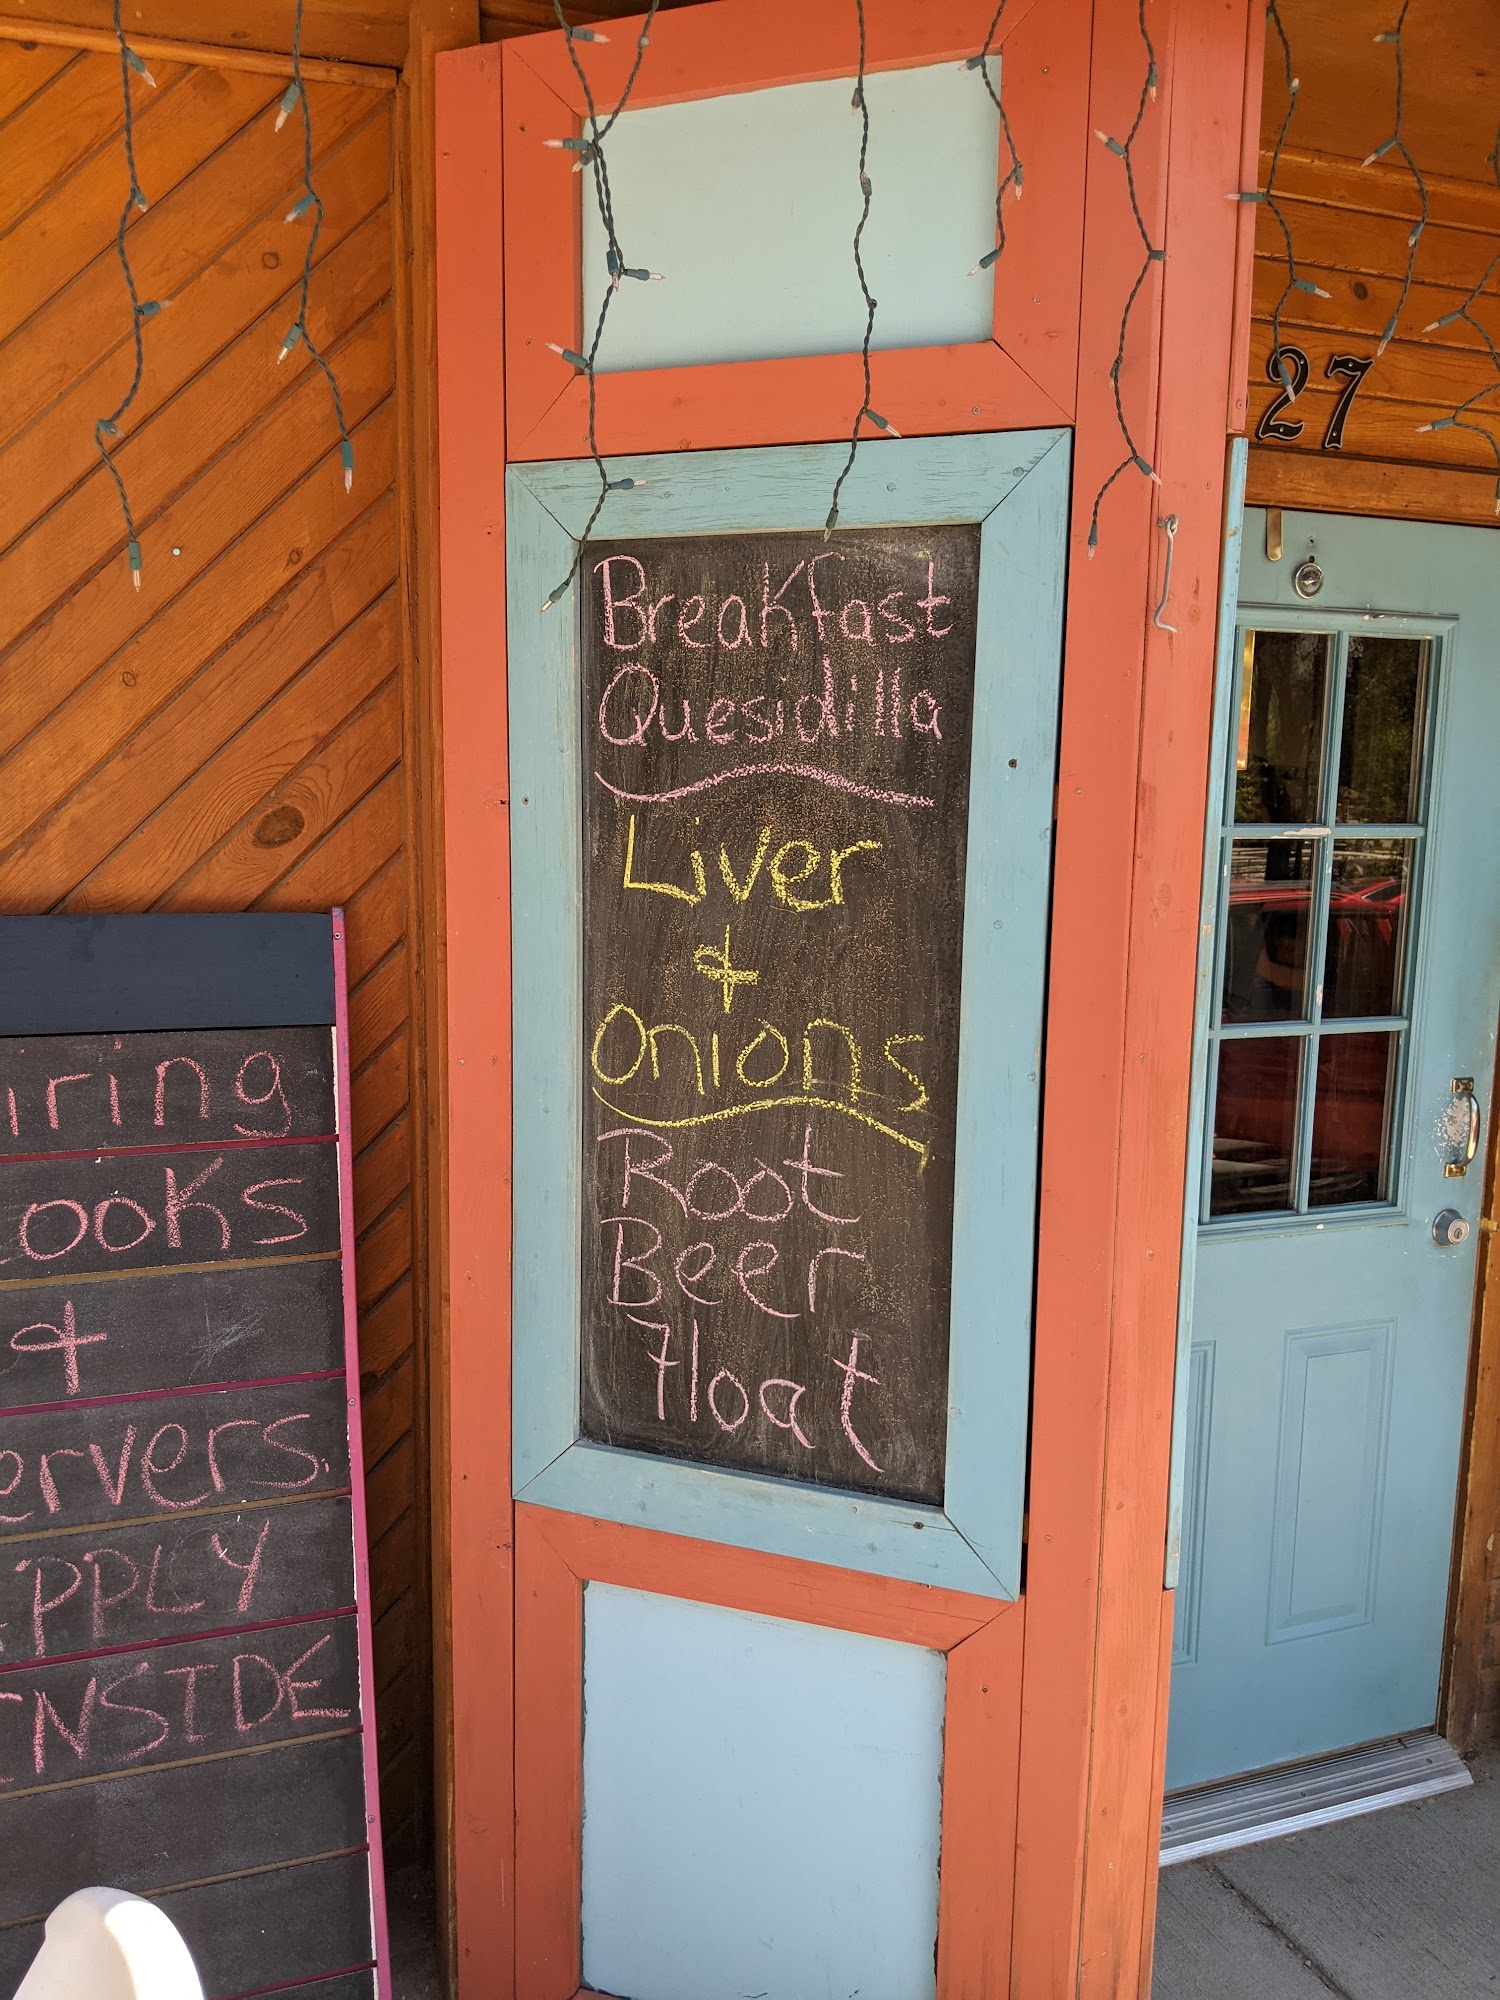 27
Breakfast
Quesidilla
Liver
&
Onions
Root
Beer
Float
iring
ooks
&
ervers.
PPLY
INSIDE